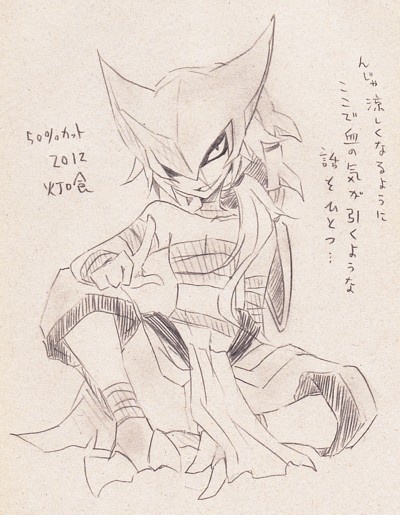 んじゃ 涼しくなるように
ここで血の気が引くような
話をひとつ…
50%カット
2012